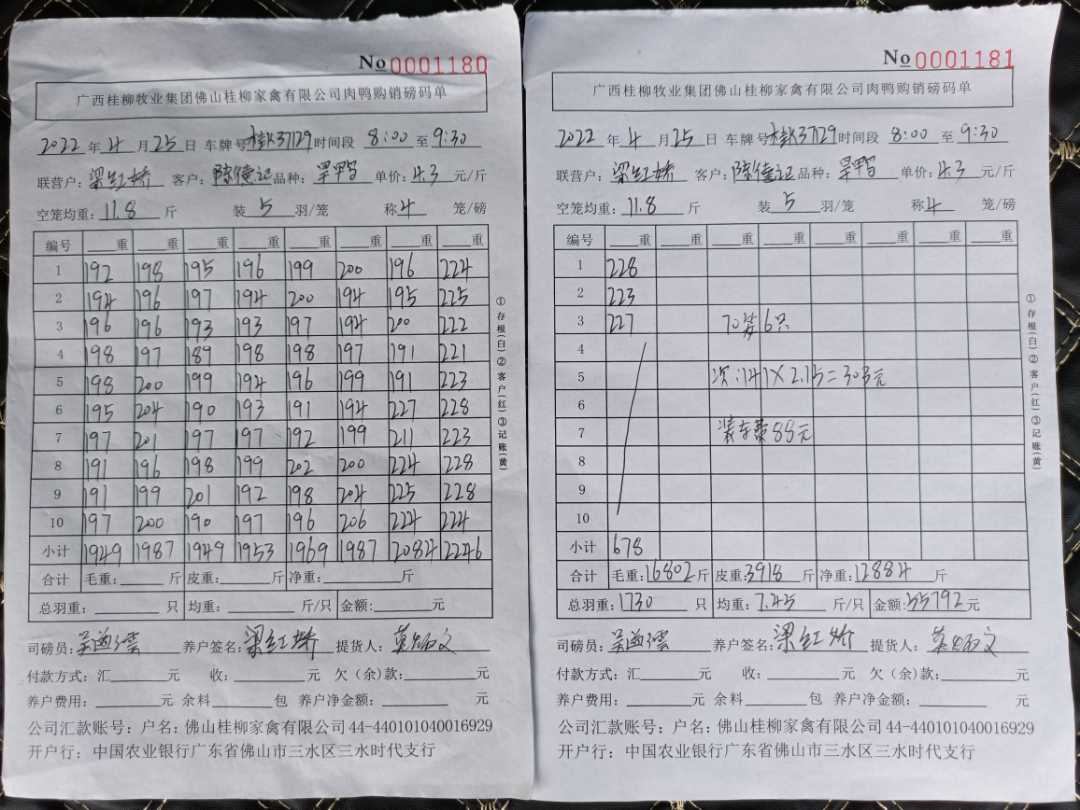 No 0001180
广西桂柳牧业集团佛山桂柳家禽有限公司肉鸭购销磅码单
2022 年 4 月 25 日 车牌号 37129 时间段 8:00 至 9:30
联营户: 梁红娇 客户: 陈德记 品种: 旱鸭 单价: 4.3 元/斤
空笼均重: 11.8 斤 装 5 羽/笼 称 4 笼/磅
编号 重 重 重 重 重 重 重 重
1 192 198 195 196 199 200 196 224
2 194 196 197 194 200 194 195 225
3 196 196 193 193 197 194 200 222
4 198 197 189 198 198 197 191 221
5 198 200 199 194 196 199 191 223
6 195 204 190 193 191 194 227 228
7 197 201 197 197 192 199 211 223
8 191 196 198 199 202 200 224 228
9 191 199 201 192 198 204 225 228
10 197 200 190 197 196 206 224 224
小计 1949 1987 1949 1953 1969 1987 2084 2246
合计 毛重: 斤 皮重: 斤 净重: 斤
总羽重: 只 均重: 斤/只 金额: 元
司磅员: 养户签名: 梁红娇 提货人:
付款方式: 汇 元 收: 元 欠（余）款: 元
养户费用: 元 余料 包 养户净金额: 元
公司汇款账号: 户名: 佛山桂柳家禽有限公司 44-440101040016929
开户行: 中国农业银行广东省佛山市三水区三水时代支行
①存根(白)②客户(红)③记账(黄)
No 0001181
广西桂柳牧业集团佛山桂柳家禽有限公司肉鸭购销磅码单
2022 年 4 月 25 日 车牌号 37129 时间段 8:00 至 9:30
联营户: 梁红娇 客户: 陈德记 品种: 旱鸭 单价: 4.3 元/斤
空笼均重: 11.8 斤 装 5 羽/笼 称 4 笼/磅
编号 重 重 重 重 重 重 重 重
1 228
2 223
3 227 70笼6只
4
5 次:141×2.15=303元
6
7 装车费88元
8
9
10
小计 678
合计 毛重: 16802 斤 皮重: 3918 斤 净重: 12884 斤
总羽重: 1730 只 均重: 7.45 斤/只 金额: 55792 元
司磅员: 养户签名: 梁红娇 提货人:
付款方式: 汇 元 收: 元 欠（余）款: 元
养户费用: 元 余料 包 养户净金额: 元
公司汇款账号: 户名: 佛山桂柳家禽有限公司 44-440101040016929
开户行: 中国农业银行广东省佛山市三水区三水时代支行
①存根(白)②客户(红)③记账(黄)